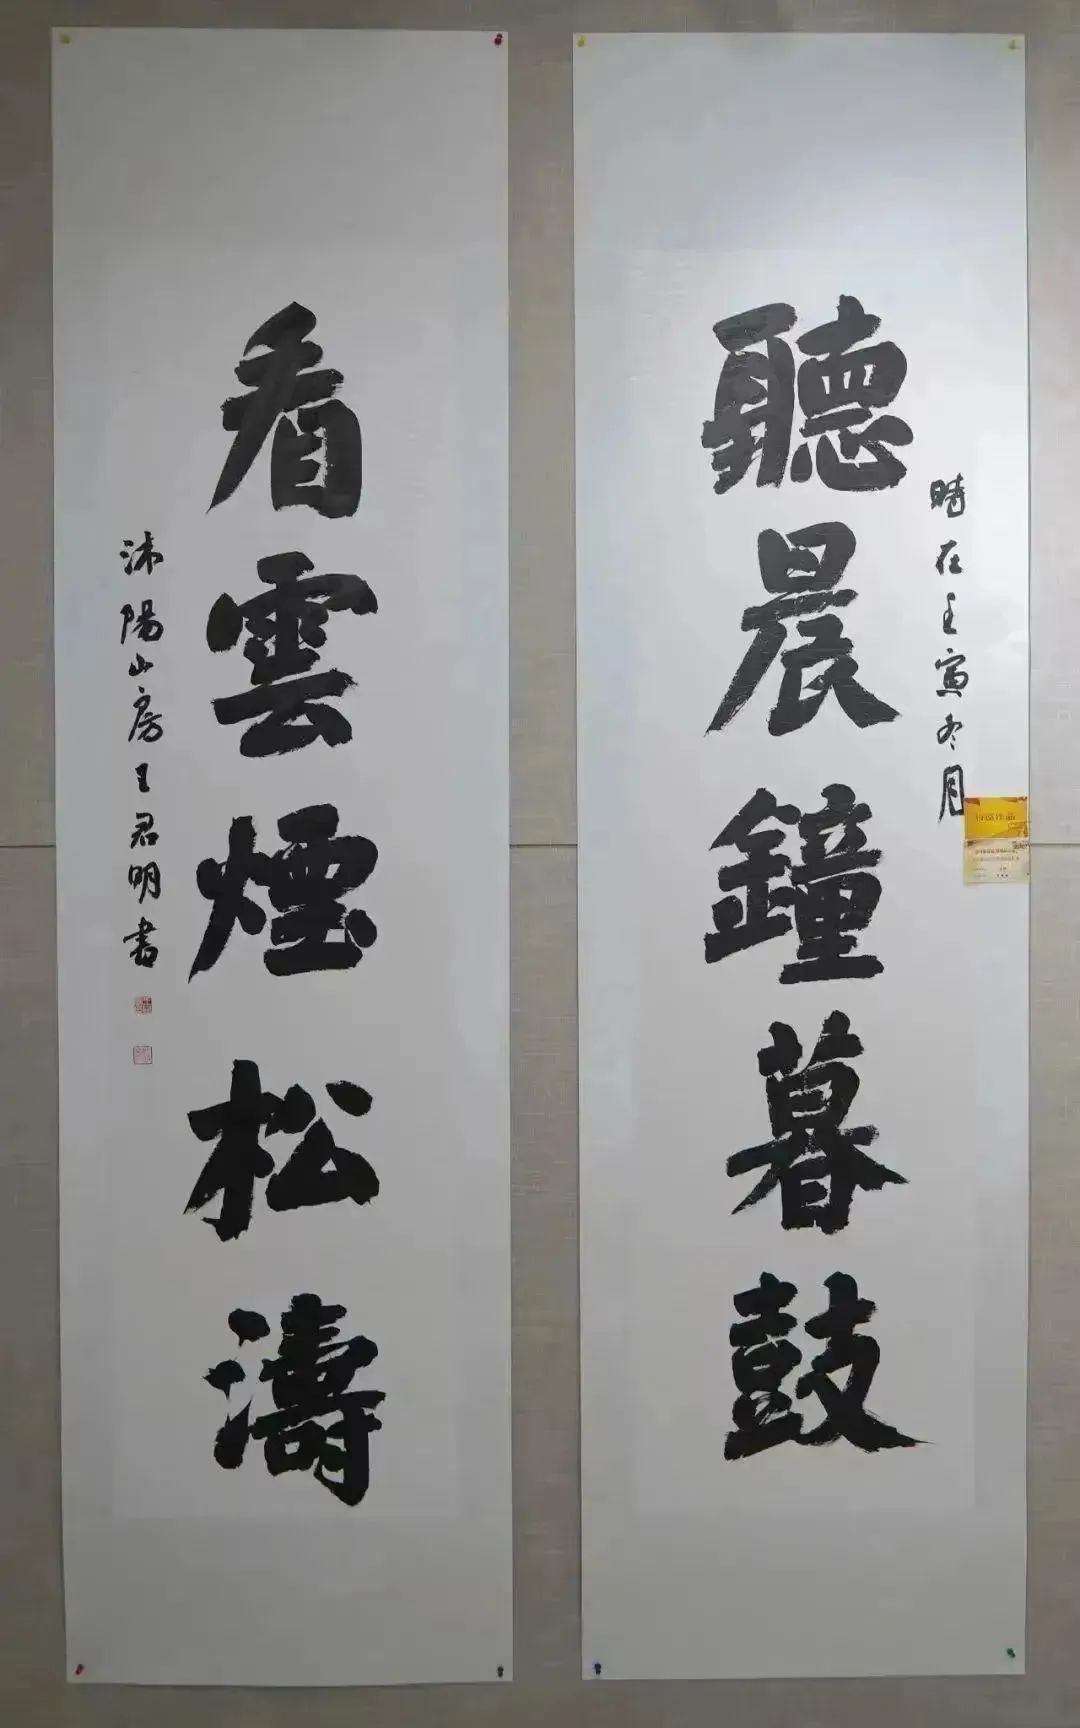 聽晨鐘暮鼓
時在壬寅冬月
看雲煙松濤
沐陽山房王君明書